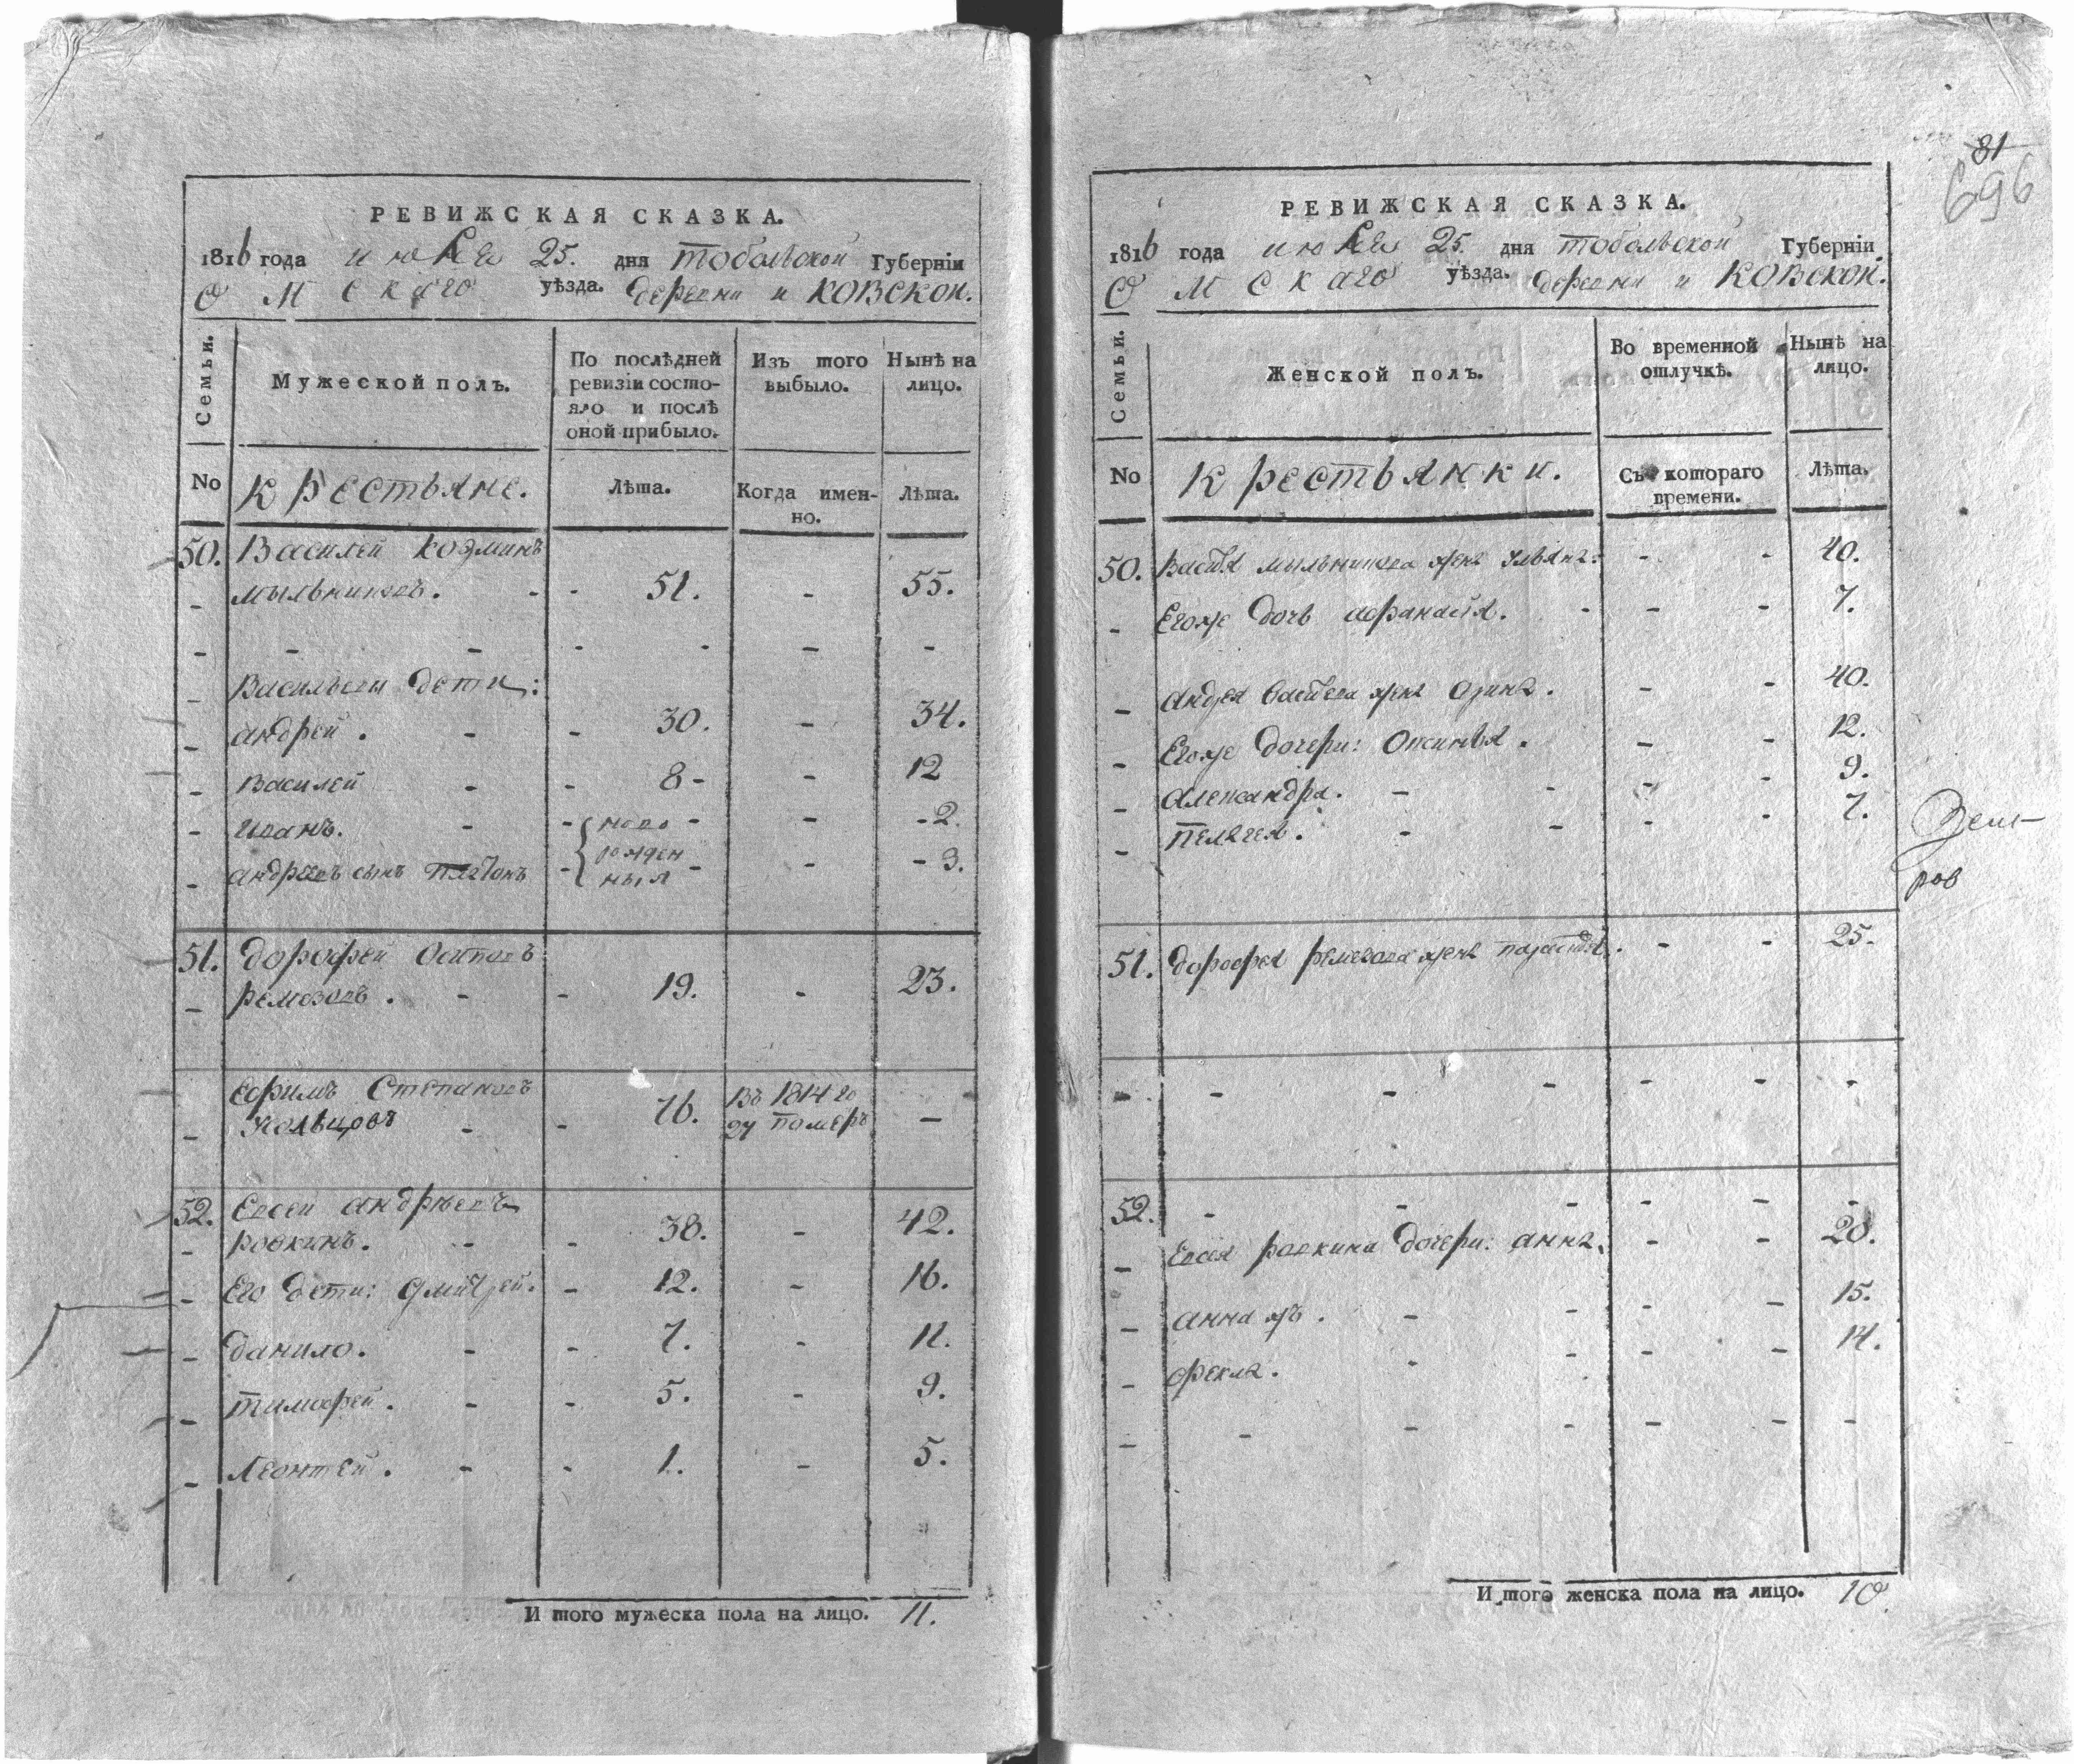 РЕВИЖСКАЯ СКАЗКА.
1816 года июля 25. дня тобольской Губернїи
Омскаго уѣзда. деревни иковской.
Семьи.
Мужеской полъ.
По послѣдней ревизїи состояло и послѣ оной прибыло.
Изъ того выбыло.
Нынѣ на лицо.
No
крестьяне.
Лѣта.
Когда именно.
Лѣта.
50. Василей козминъ
мыльниковъ. - - 51. - 55.
- - - - - - -
Васильевы дети:
андрей. - - 30. - 34.
василей - - 8 - - 12
иванъ. - - ново - - - 2.
андреевъ сынъ Платонъ - рожденныя - - - 3.
51. дорофей осиповъ
ремезовъ. - - 19. - 23.
Ефимъ Степановъ
Кольцовъ - - 76. Въ 1814 году померъ -
52. Евсей андрѣевъ
ровкинъ. - - 38. - 42.
Его дети: дмитрей. - 12. - 16.
данило. - - 7. - 11.
тимофей. - - 5. - 9.
Леонтей. - - 1. - 5.
И того мужеска пола на лицо. 11.
81
696
РЕВИЖСКАЯ СКАЗКА.
1816 года июля 25. дня тобольской Губернїи
Омскаго уѣзда. деревни иковской.
Семьи.
Женской полъ.
Во временной отлучкѣ.
Нынѣ на лицо.
No
крестьянки.
Съ котораго времени.
Лѣта.
50. Василья мыльникова жена ульяна: - - 40.
Егоже дочь афанасья. - - - 7.
андрея васильева жена - - 40.
Егоже дочери: - - 12.
александра. - - - - 9.
пелагея. - - - - 7.
51. дорофея ремезова жена - - 25.
- - - - - - -
52. - - - - - -
Евсея ровкина дочери: анна. - - 20.
анна жъ. - - - - 15.
фекла. - - - - 14.
- - - - - - -
И того женска пола на лицо. 10.